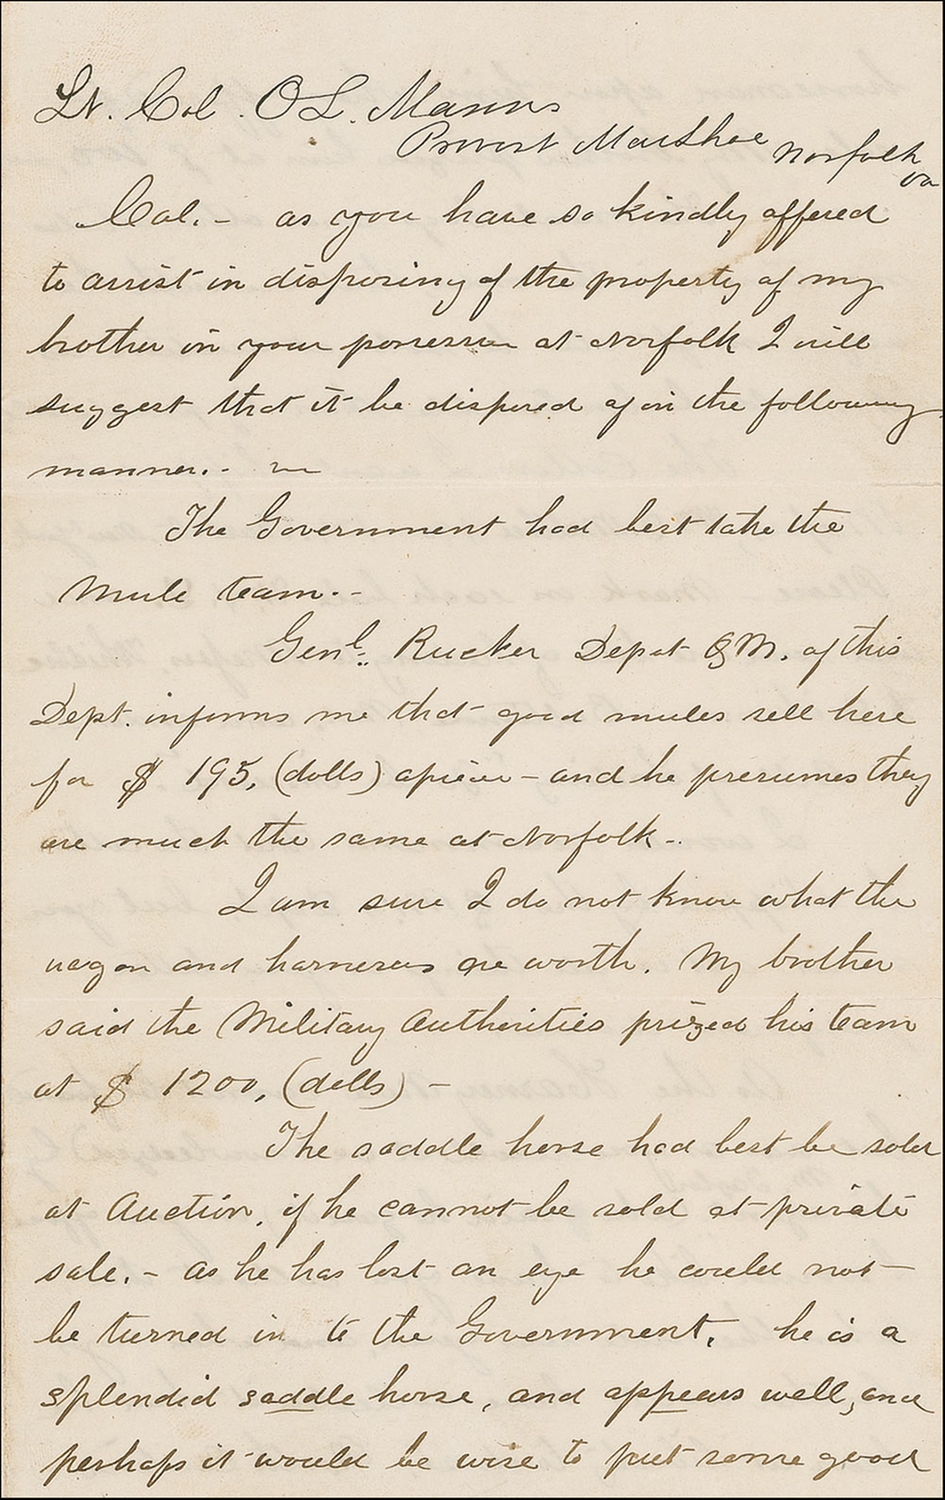 Lt. Col. O L. Manns
Provost Marshal Norfolk
Va
Col. - as you have so kindly offered
to assist in disposing of the property of my
brother in your possession at Norfolk I will
suggest that it be disposed of in the following
manner. -
The Government had best take the
Mule team. -
Genl. Rucker Depot Q M. of this
Dept. informs me that good mules sell here
for $ 195, (dolls) apiece - and he presumes they
are much the same at Norfolk -
I am sure I do not know what the
wagon and harnesses are worth. My brother
said the Military Authorities prized his team
at $ 1200, (dolls) -
The saddle horse had best be sold
at Auction, if he cannot be sold at private
sale. - as he has lost an eye he could not
be turned in to the Government. he is a
splendid saddle horse, and appears well, and
perhaps it would be wise to put some good